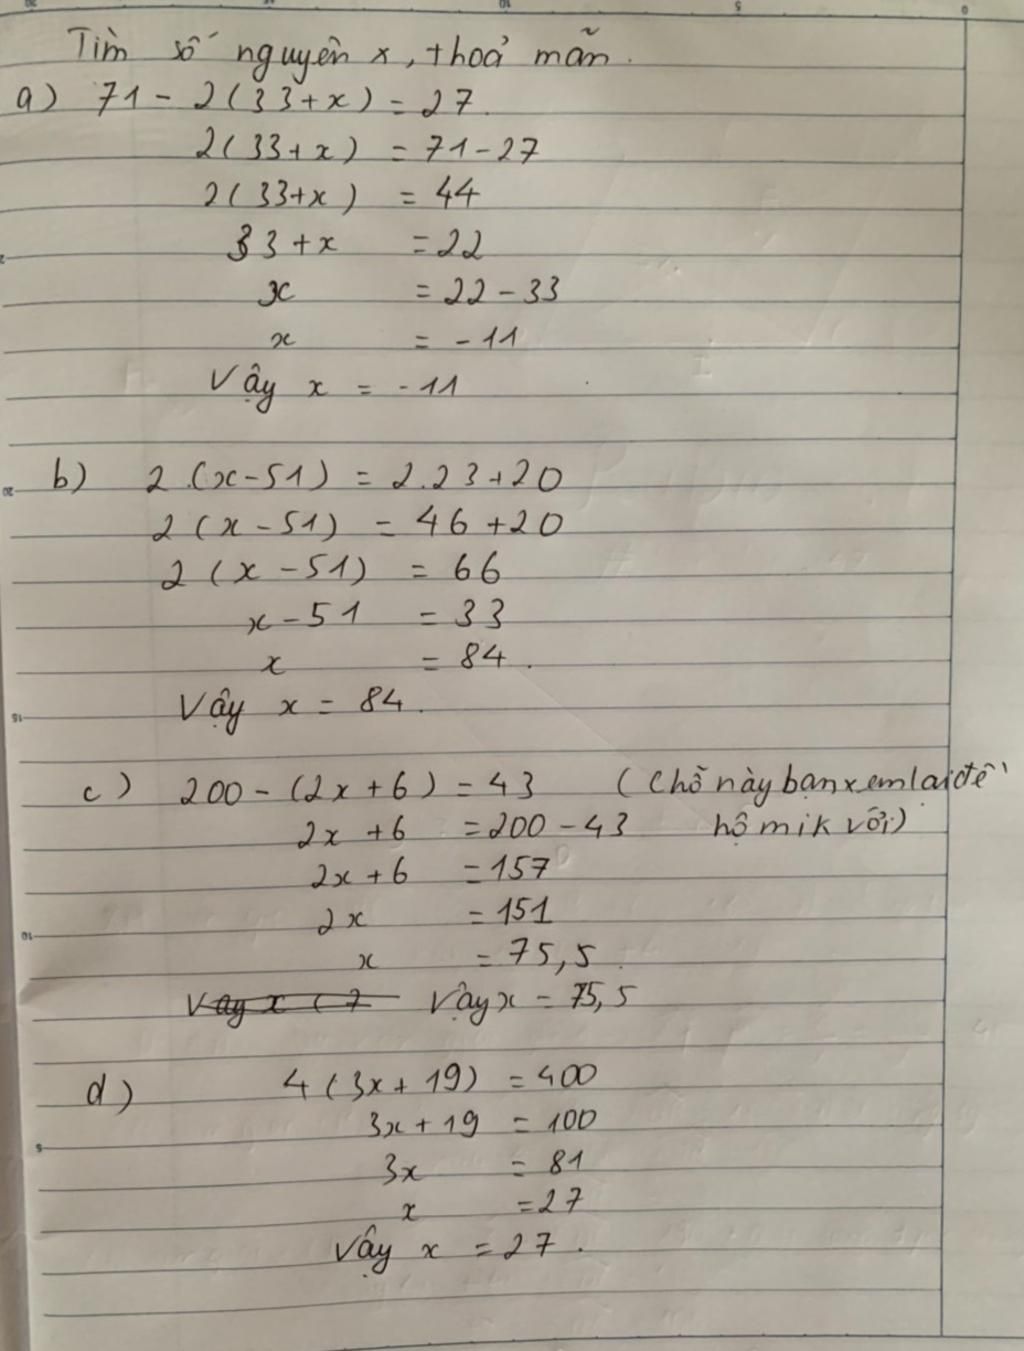 Tìm số nguyên x, thoả mãn.
a) 71 - 2(33+x) = 27.
2(33+x) = 71-27
2(33+x) = 44
33+x = 22
x = 22-33
x = -11
Vậy x = -11
b) 2.(x-51) = 2.23+20
2(x-51) = 46+20
2(x-51) = 66
x-51 = 33
x = 84.
Vậy x = 84.
c) 200-(2x+6) = 43 (Chỗ này bạn xem lại đề
2x+6 = 200-43 hộ mik với)
2x+6 = 157
2x = 151
x = 75,5.
Vậy x = 75,5
d) 4(3x+19) = 400
3x+19 = 100
3x = 81
x = 27
Vậy x = 27.